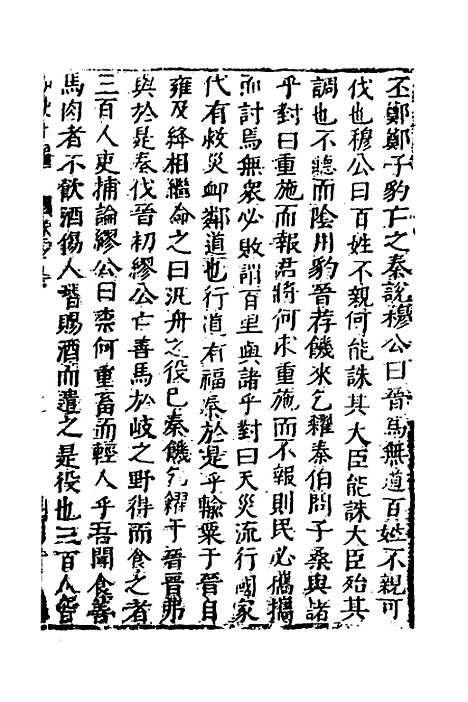 丕鄭鄭子豹亡之秦說穆公曰晉馬無道百姓不親可
伐也穆公曰百姓不親何能誅其大臣能誅大臣殆其
調也不聽而陰用豹晉荐饑來乞糴秦伯問子桑與諸
乎對曰重施而報君將何求重施而不報則民必攜攜
而討焉無衆必敗謂百里與諸乎對曰天災流行國家
代有救災卹鄰道也行道有福秦於是乎輸粟于晉自
雍及絳相繼命之曰汎舟之役已秦饑乞糴于晉晉弗
與於是秦伐晉初繆公亡善馬於岐之野得而食之者
三百人吏捕論繆公曰柰何重畜而輕人乎吾聞食善
馬肉者不飲酒傷人皆賜酒而遣之是役也三百人皆